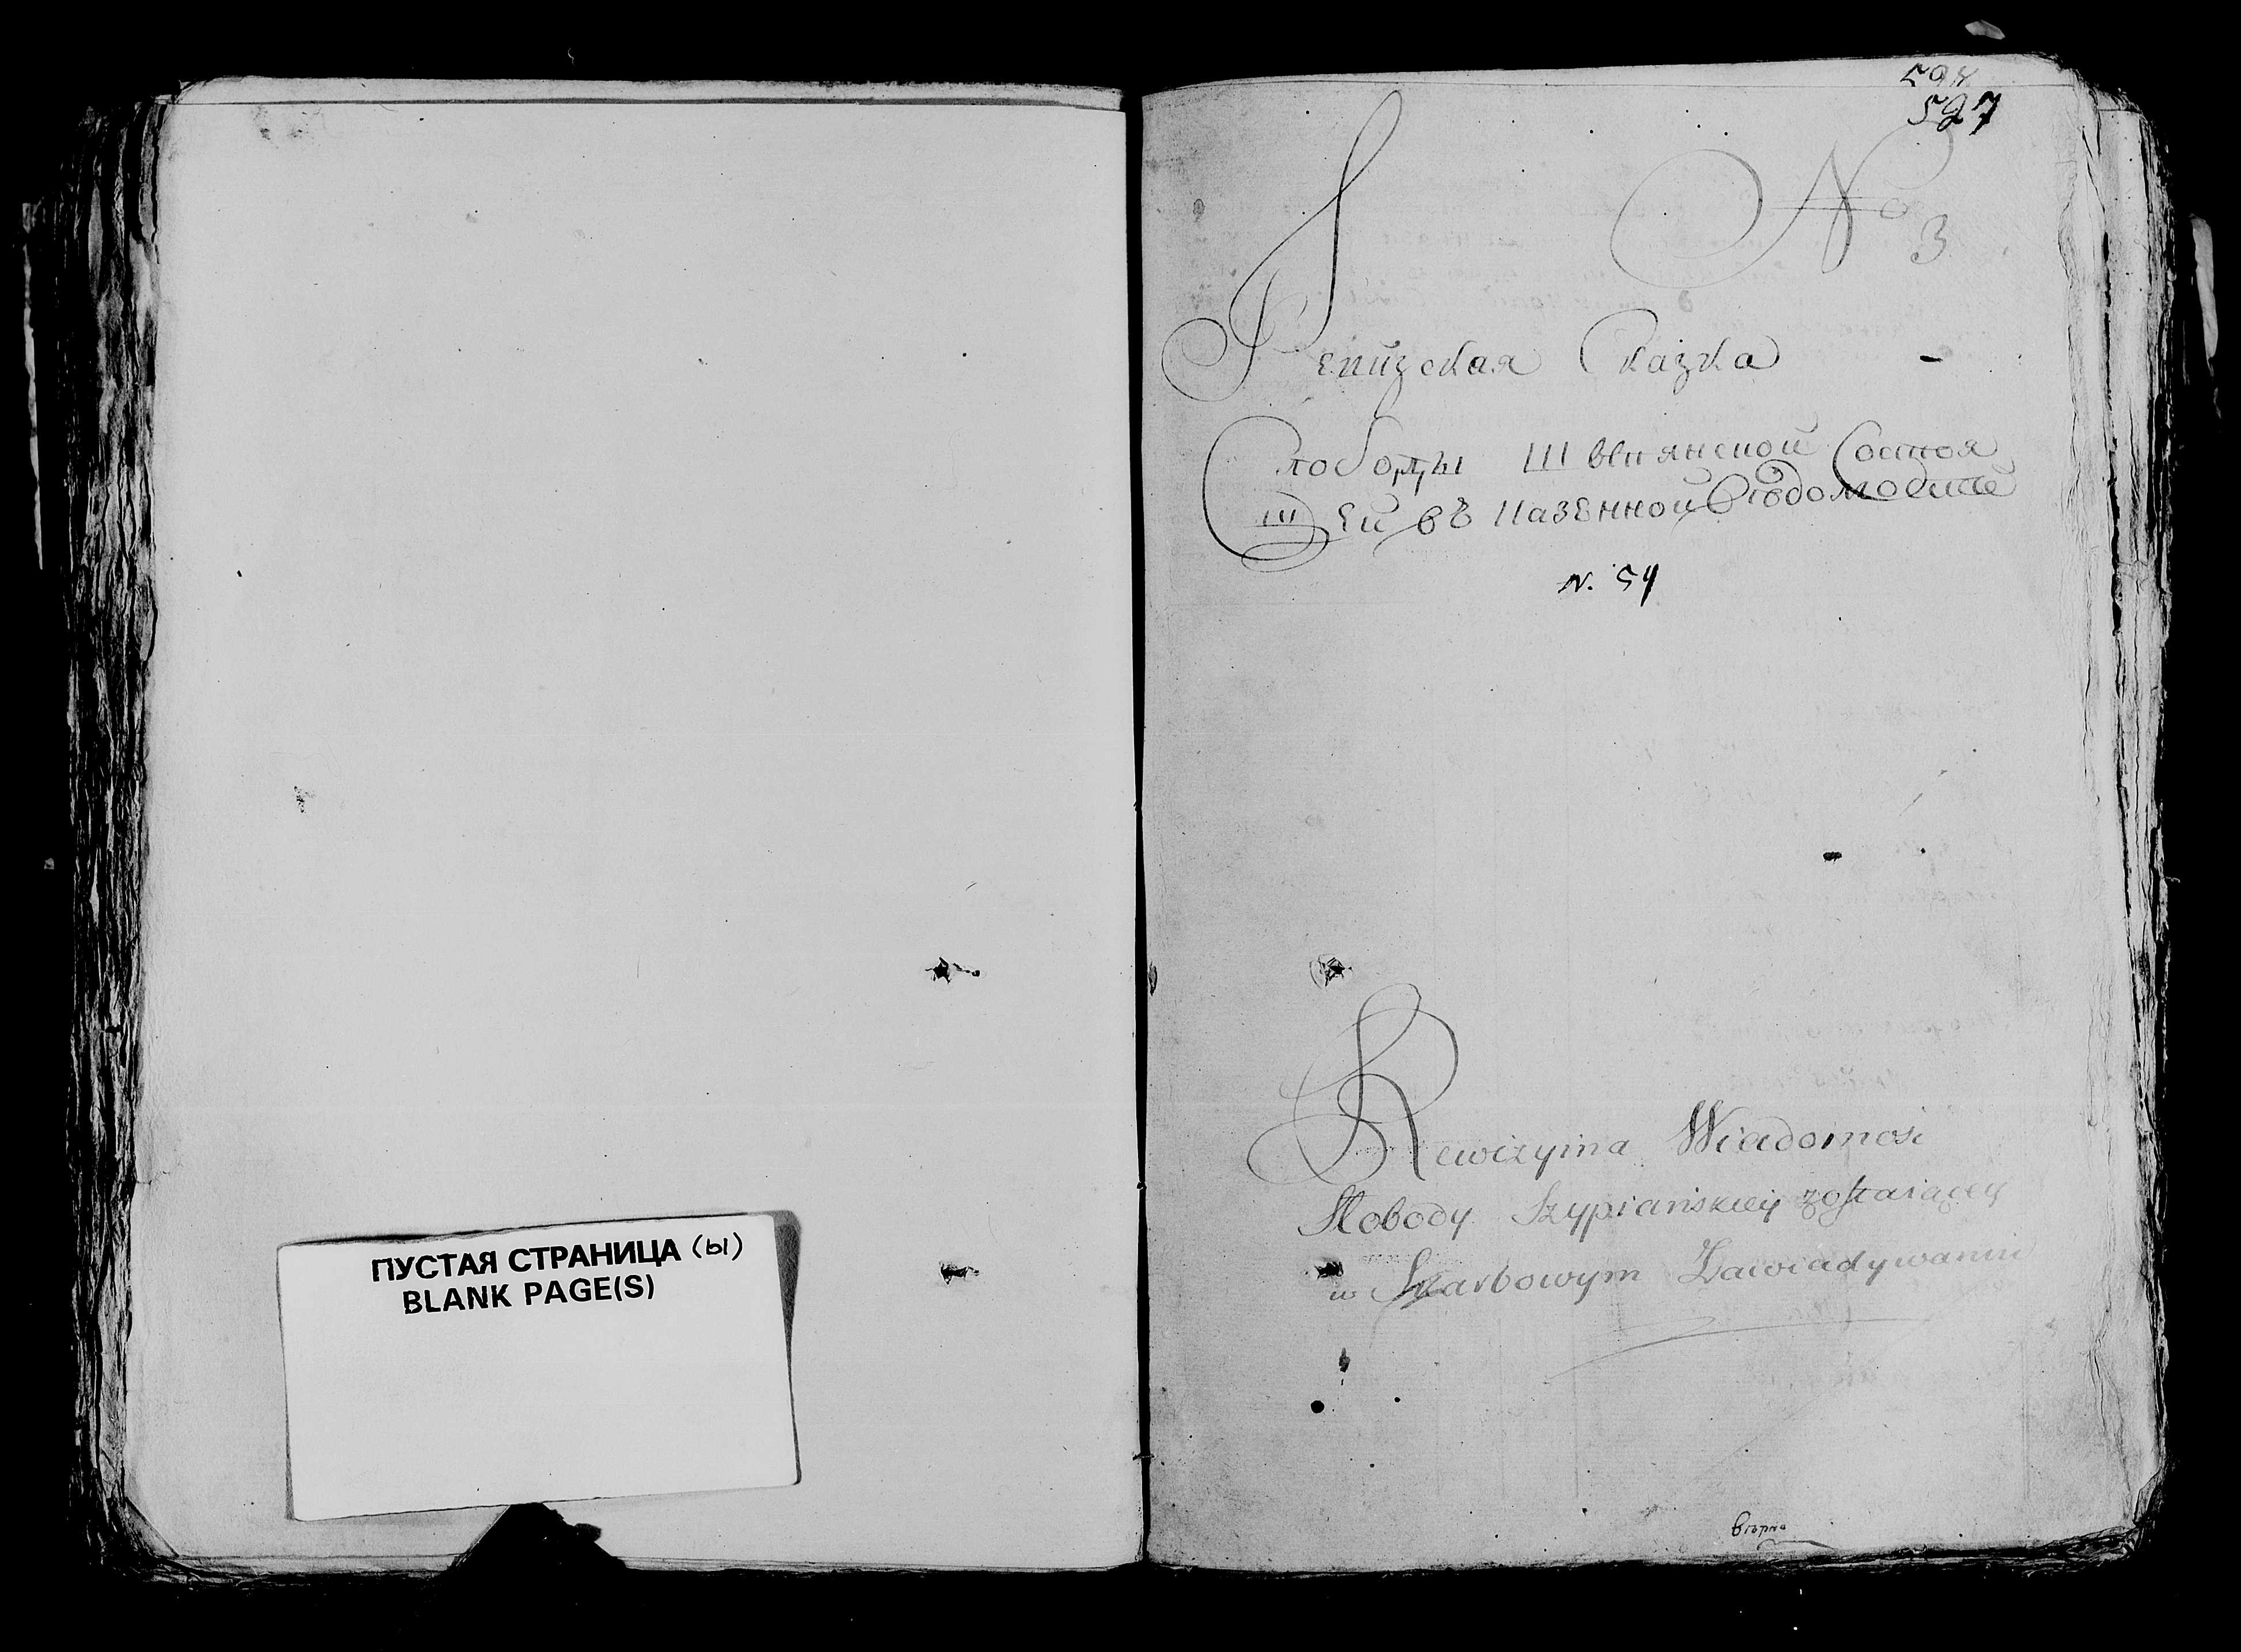 ПУСТАЯ СТРАНИЦА (ы)
BLANK PAGE(S)
527
№ 3
Ревизская Сказка
Слободы Состоя
щей въ Казенной Ведомости
N. 54
Rewizyina Wiadomość
Słobody Szypiańskiey zostaiącey
w Skarbowym Zawiadywaniu
вѣрно